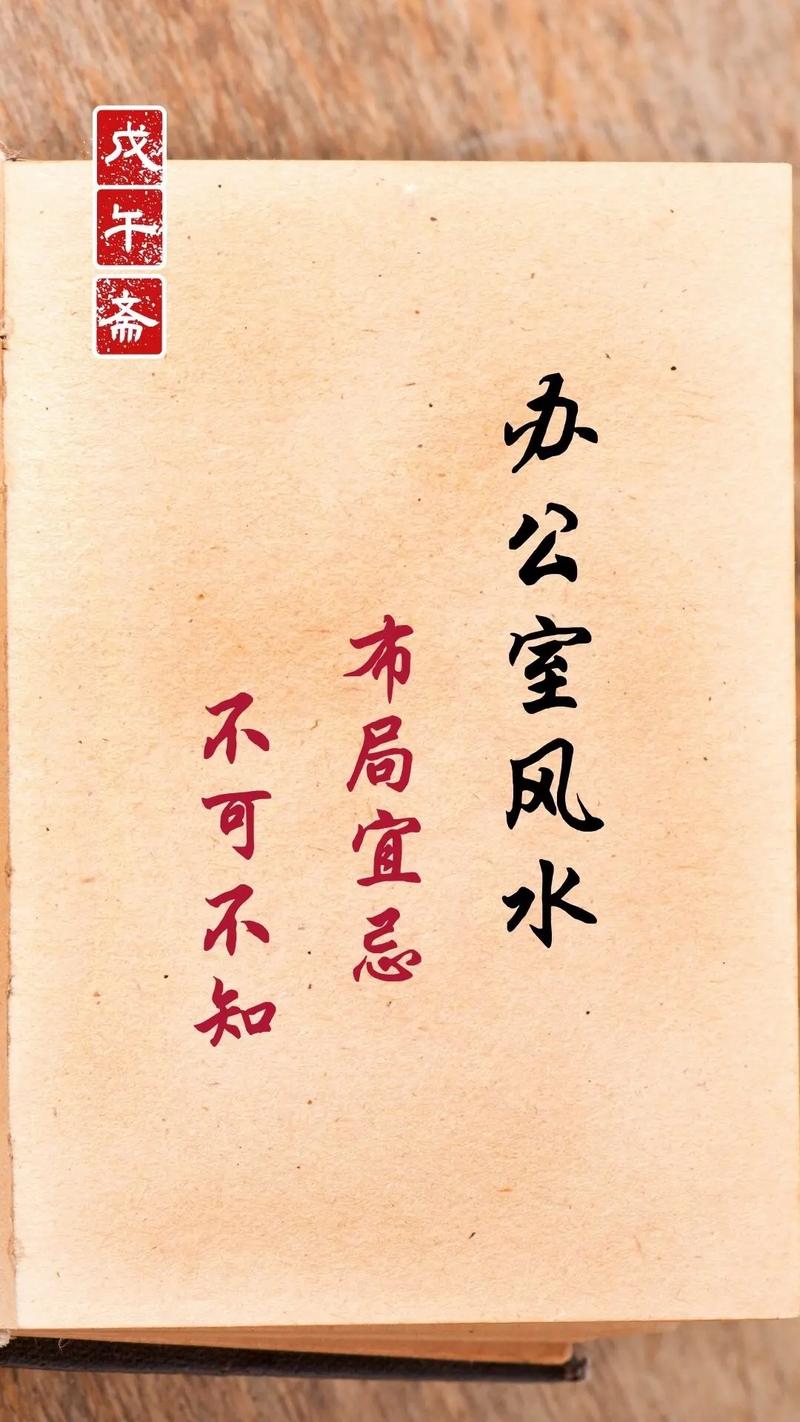 戊午斋
办公室风水
布局宜忌
不可不知